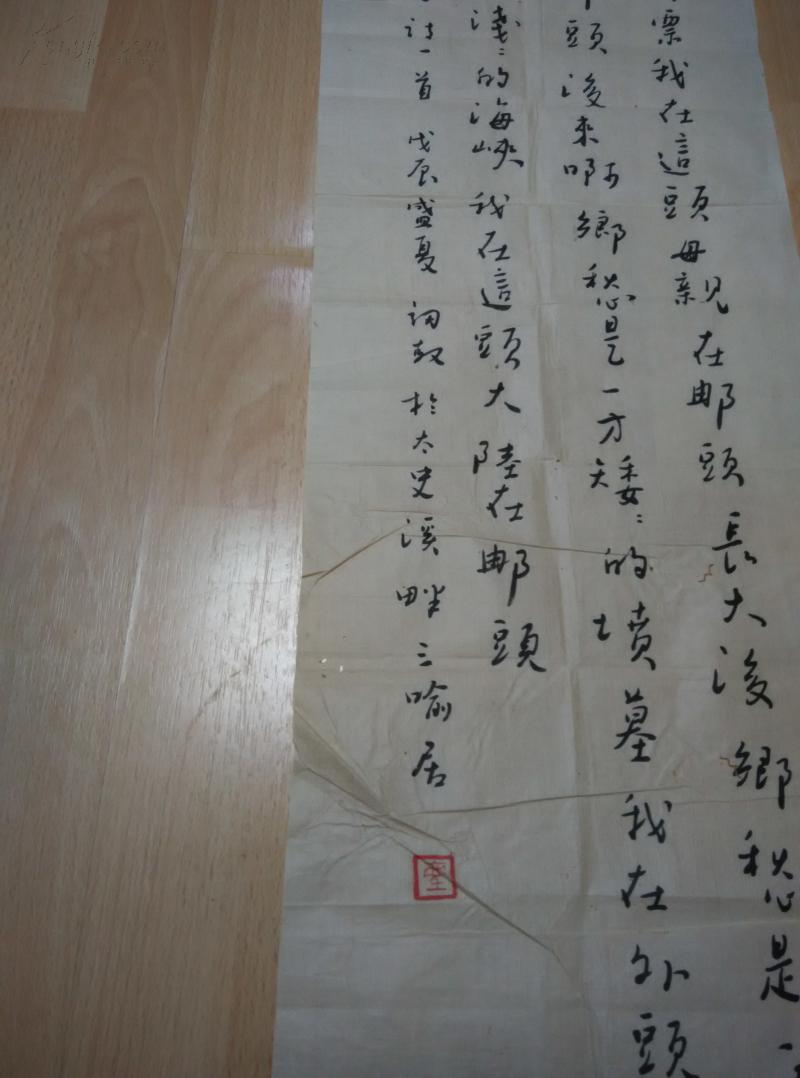 票我在這頭母親在那頭長大後鄉愁是一
頭後來啊鄉愁是一方矮〻的墳墓我在外頭
淺〻的海峽我在這頭大陸在那頭
詩一首 戊辰盛夏 於太史溪畔三喻居